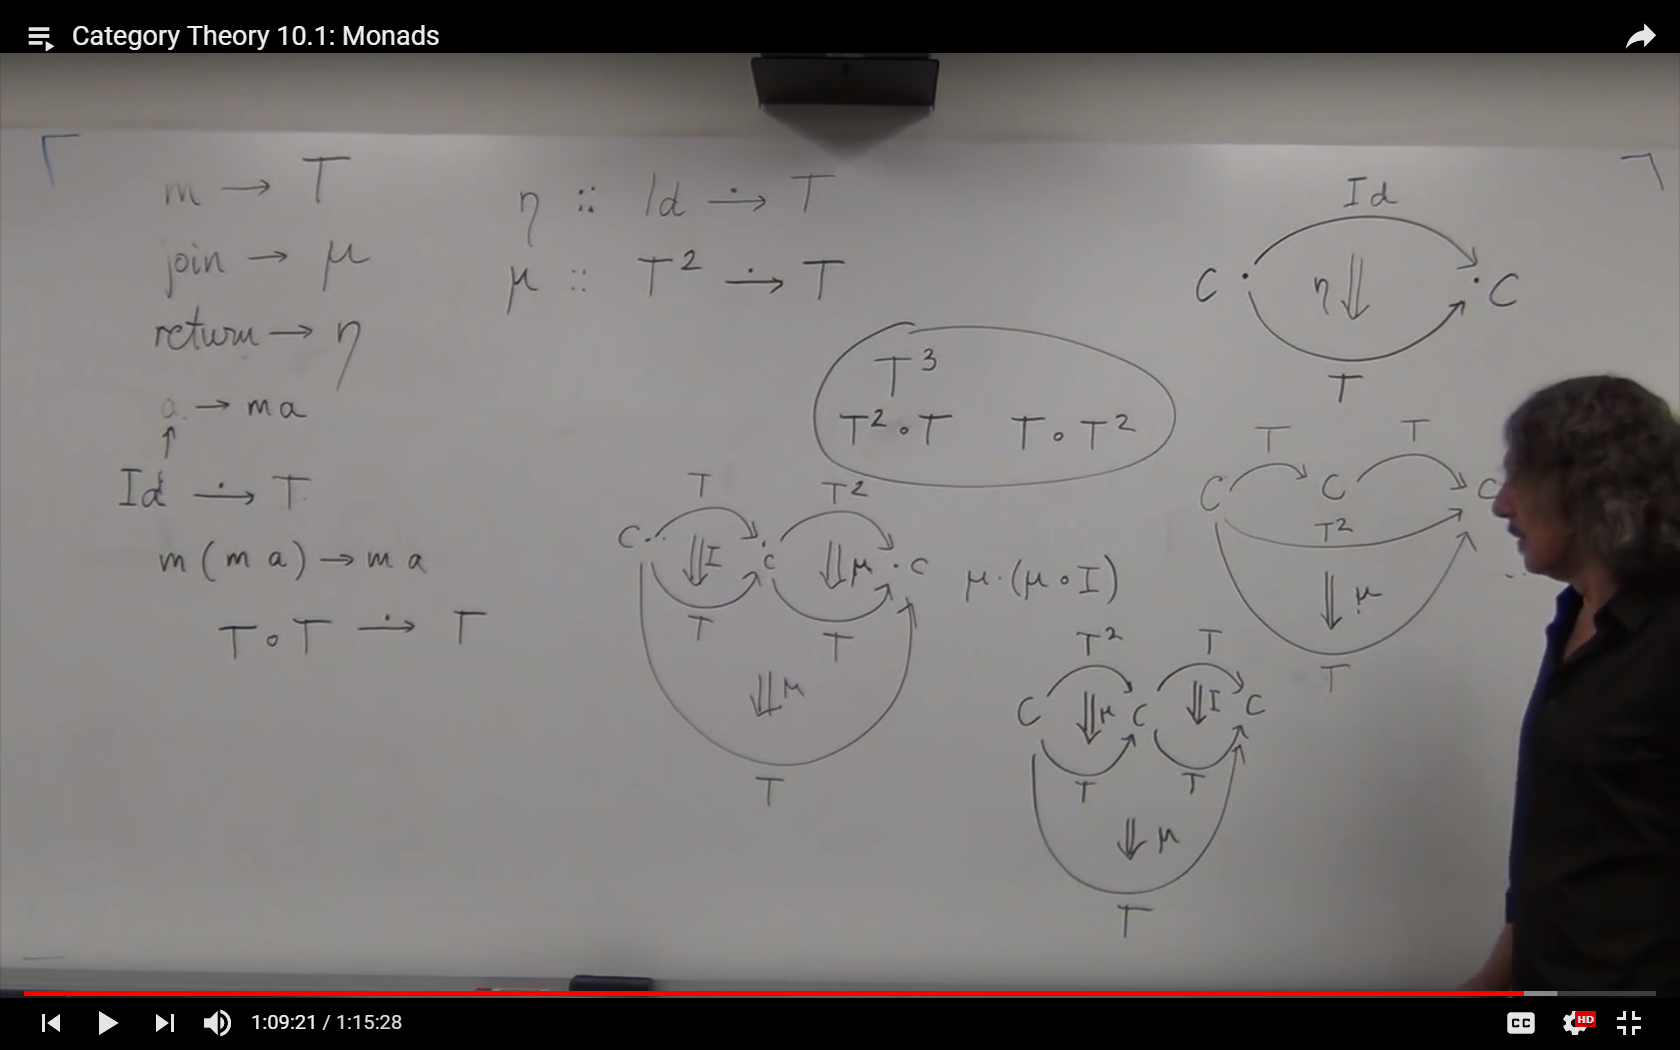 Category Theory 10.1: Monads
m → T
join → μ
return → η
a → m a
↑
Id ∸→ T
m ( m a ) → m a
T ∘ T ∸→ T
η :: Id ∸→ T
μ :: T² ∸→ T
T³
T² ∘ T T ∘ T²
T T²
C ⇓ I C ⇓ μ C
T T
⇓ μ
T
μ · (μ ∘ I)
T² T
C ⇓ μ C ⇓ I C
T T
⇓ μ
T
Id
C η ⇓ C
T
T T
C C C
T²
⇓ μ
T
1:09:21 / 1:15:28
CC
HD